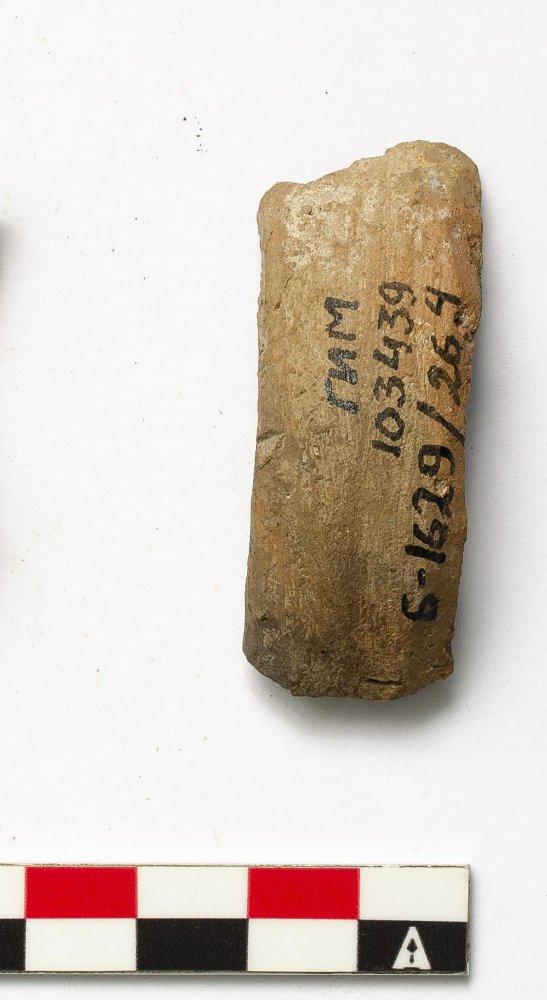 ГИМ
103439
Б-1629/264